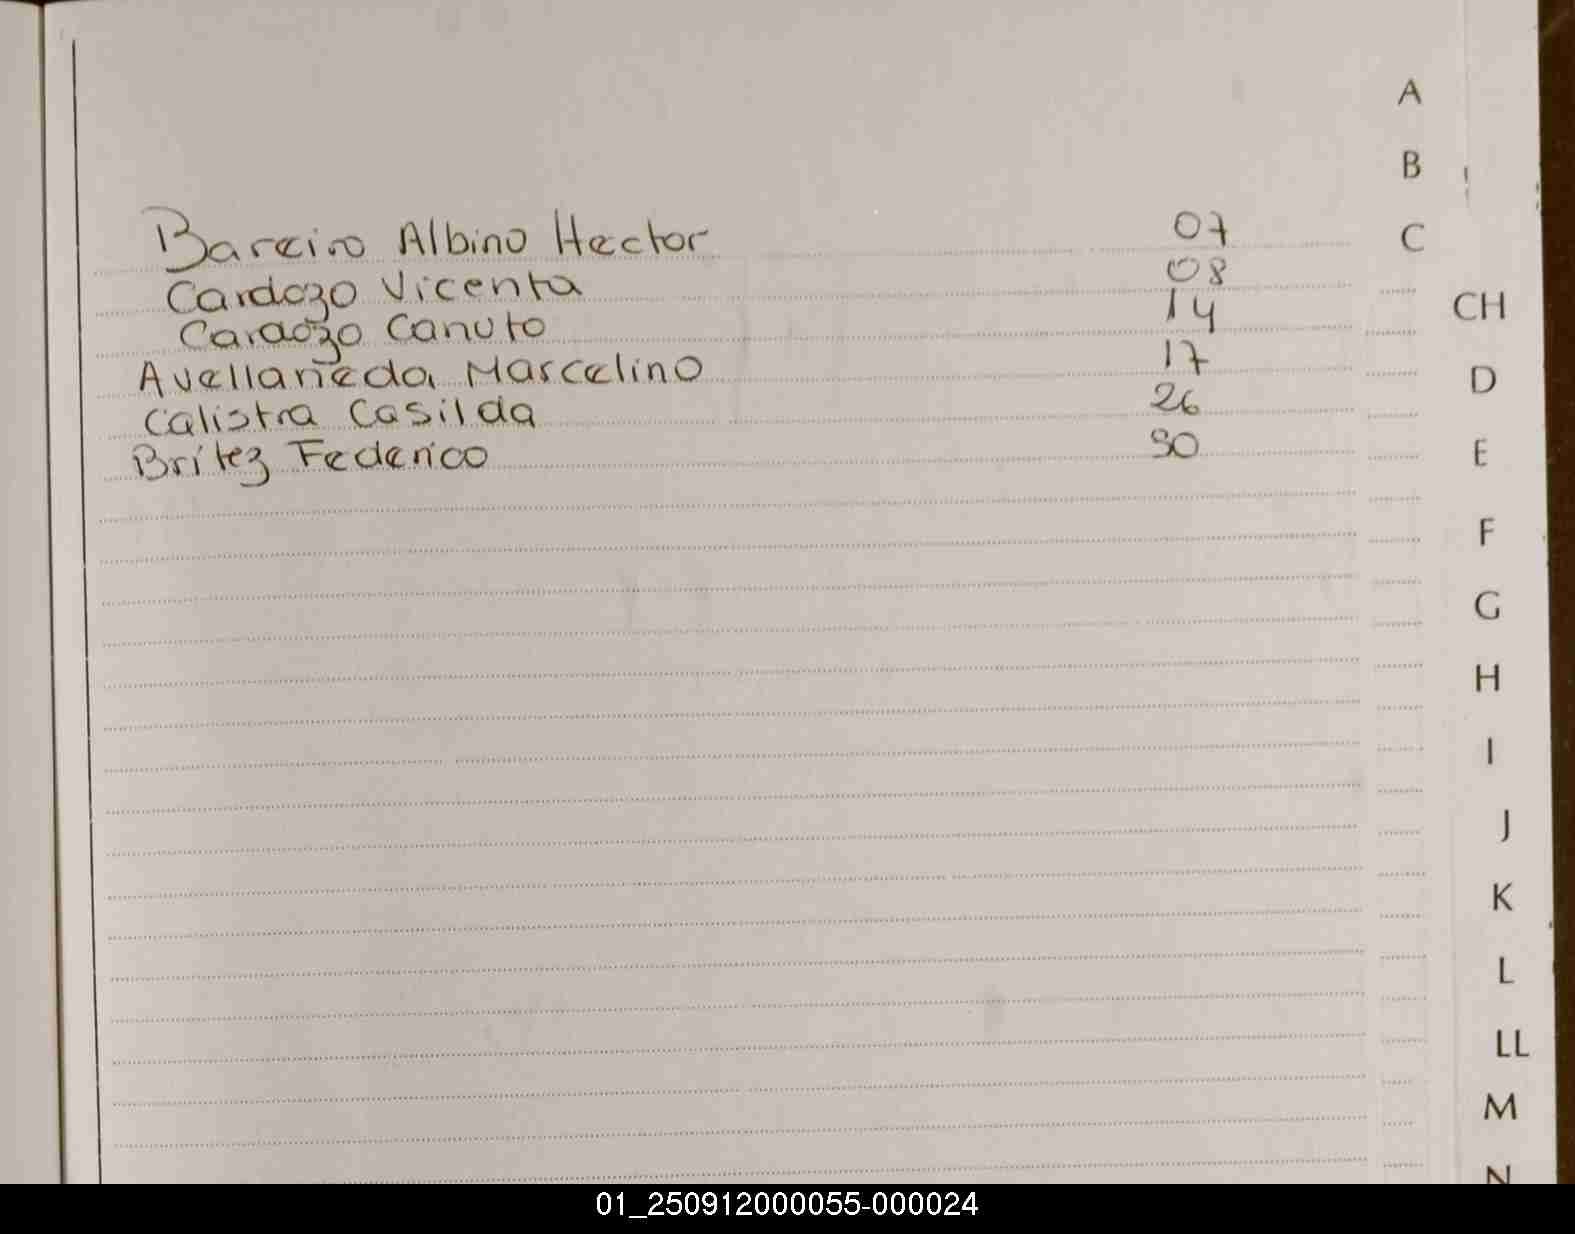 A
B
Bareiro Albino Hector 07 C
Cardozo Vicenta 08
Cardozo Canuto 14 CH
Avellaneda Marcelino 17 D
Calistra Casilda 26
Britez Federico 30 E
F
G
H
I
J
K
L
LL
M
N
01_250912000055-000024